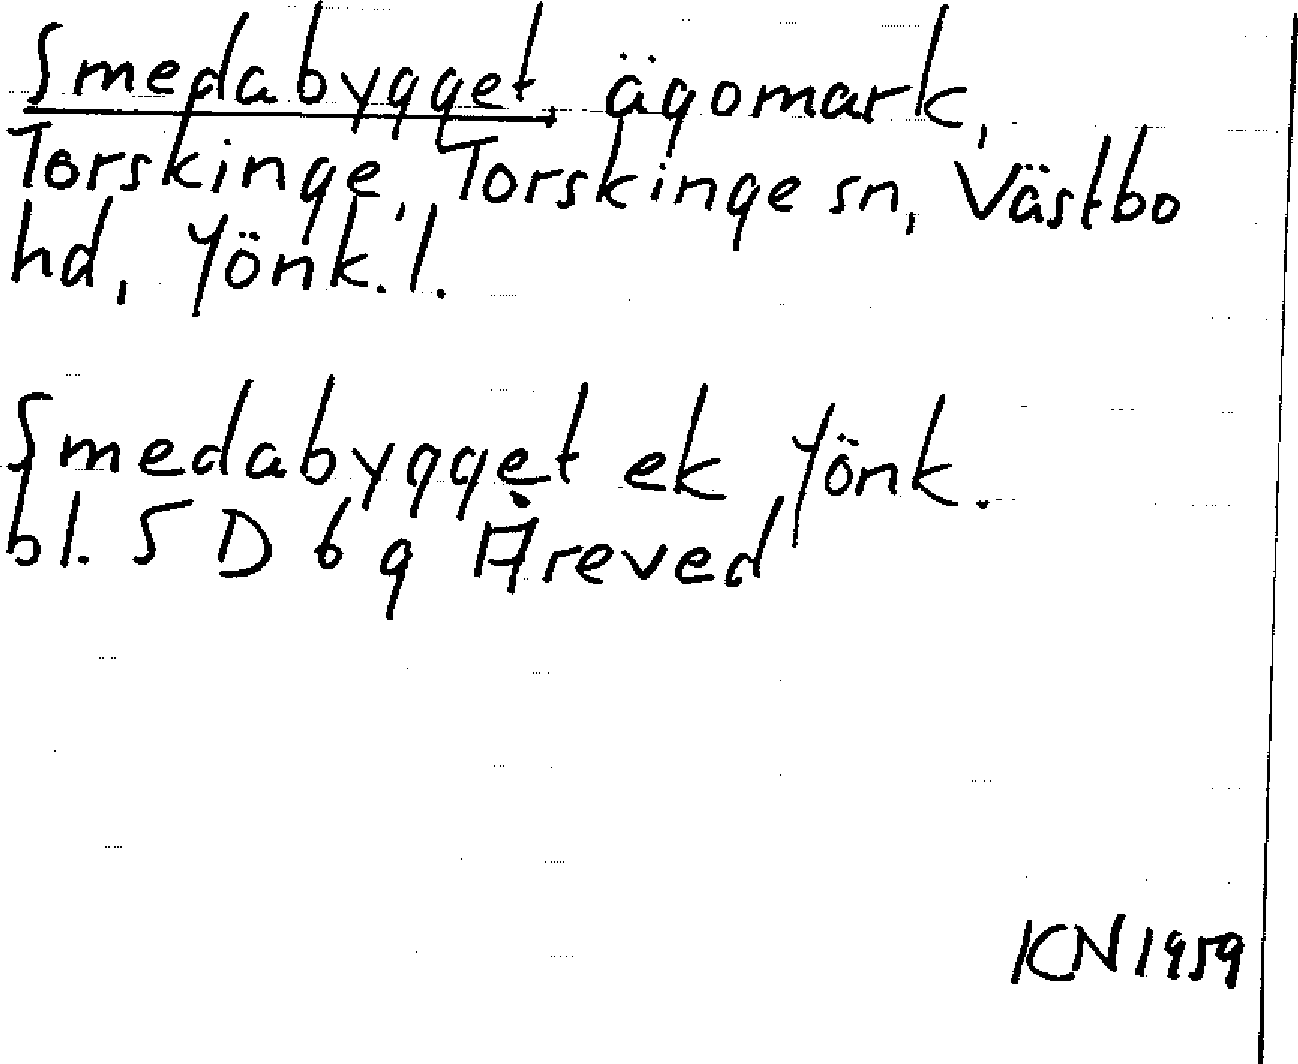 Smedabygget, ägomark,
Torskinge, Torskinge sn, Västbo
hd, Jönk. l.
Smedabygget ek Jönk.
bl. 5 D 6 g Åreved
KN 1959